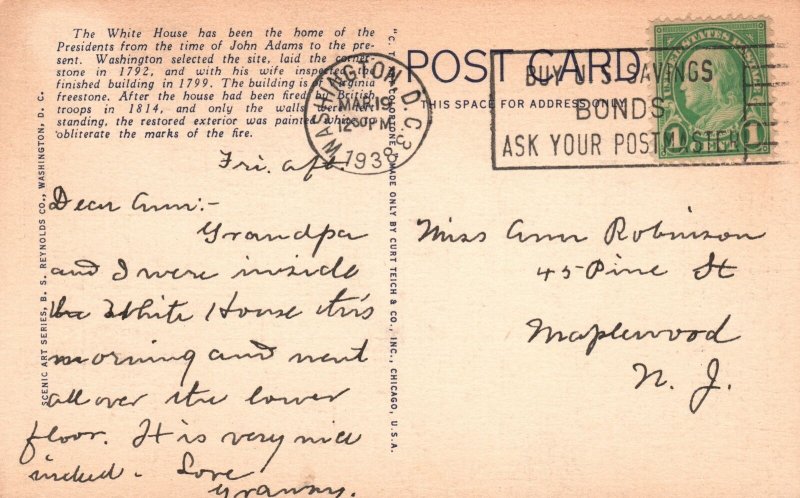 The White House has been the home of the
Presidents from the time of John Adams to the pre-
sent. Washington selected the site, laid the corner-
stone in 1792, and with his wife inspected the
finished building in 1799. The building is of Virginia
freestone. After the house had been fired by British
troops in 1814, and only the walls were left
standing, the restored exterior was painted white to
obliterate the marks of the fire.
SCENIC ART SERIES, B. S. REYNOLDS CO., WASHINGTON, D. C.
Fri. aft.
Dear Ann:-
Grandpa
and I were inside
the White House this
morning and went
all over the lower
floor. It is very nice
indeed. Love
Granny.
MADE ONLY BY CURT TEICH & CO., INC., CHICAGO, U.S.A.
POST CARD
THIS SPACE FOR ADDRESS ONLY
WASHINGTON, D.C.
MAR 19
12 PM
BUY U.S. SAVINGS
BONDS
ASK YOUR POSTMASTER
UNITED STATES POSTAGE
1 1
Miss Ann Robinson
45 Pine St
Maplewood
N. J.